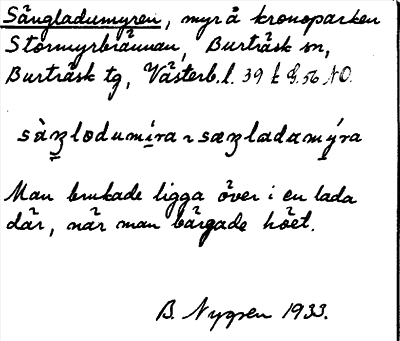 Sängladumyren, myr å kronoparken
Stormyrbrännan, Burträsk sn,
Burträsk tg, Västerb.l. 39 k G.56 NO.
sàꞥlodumíra ~ sæꞥladamýra
Man brukade ligga över i en lada
där, när man bärgade höet.
B. Nygren 1933.